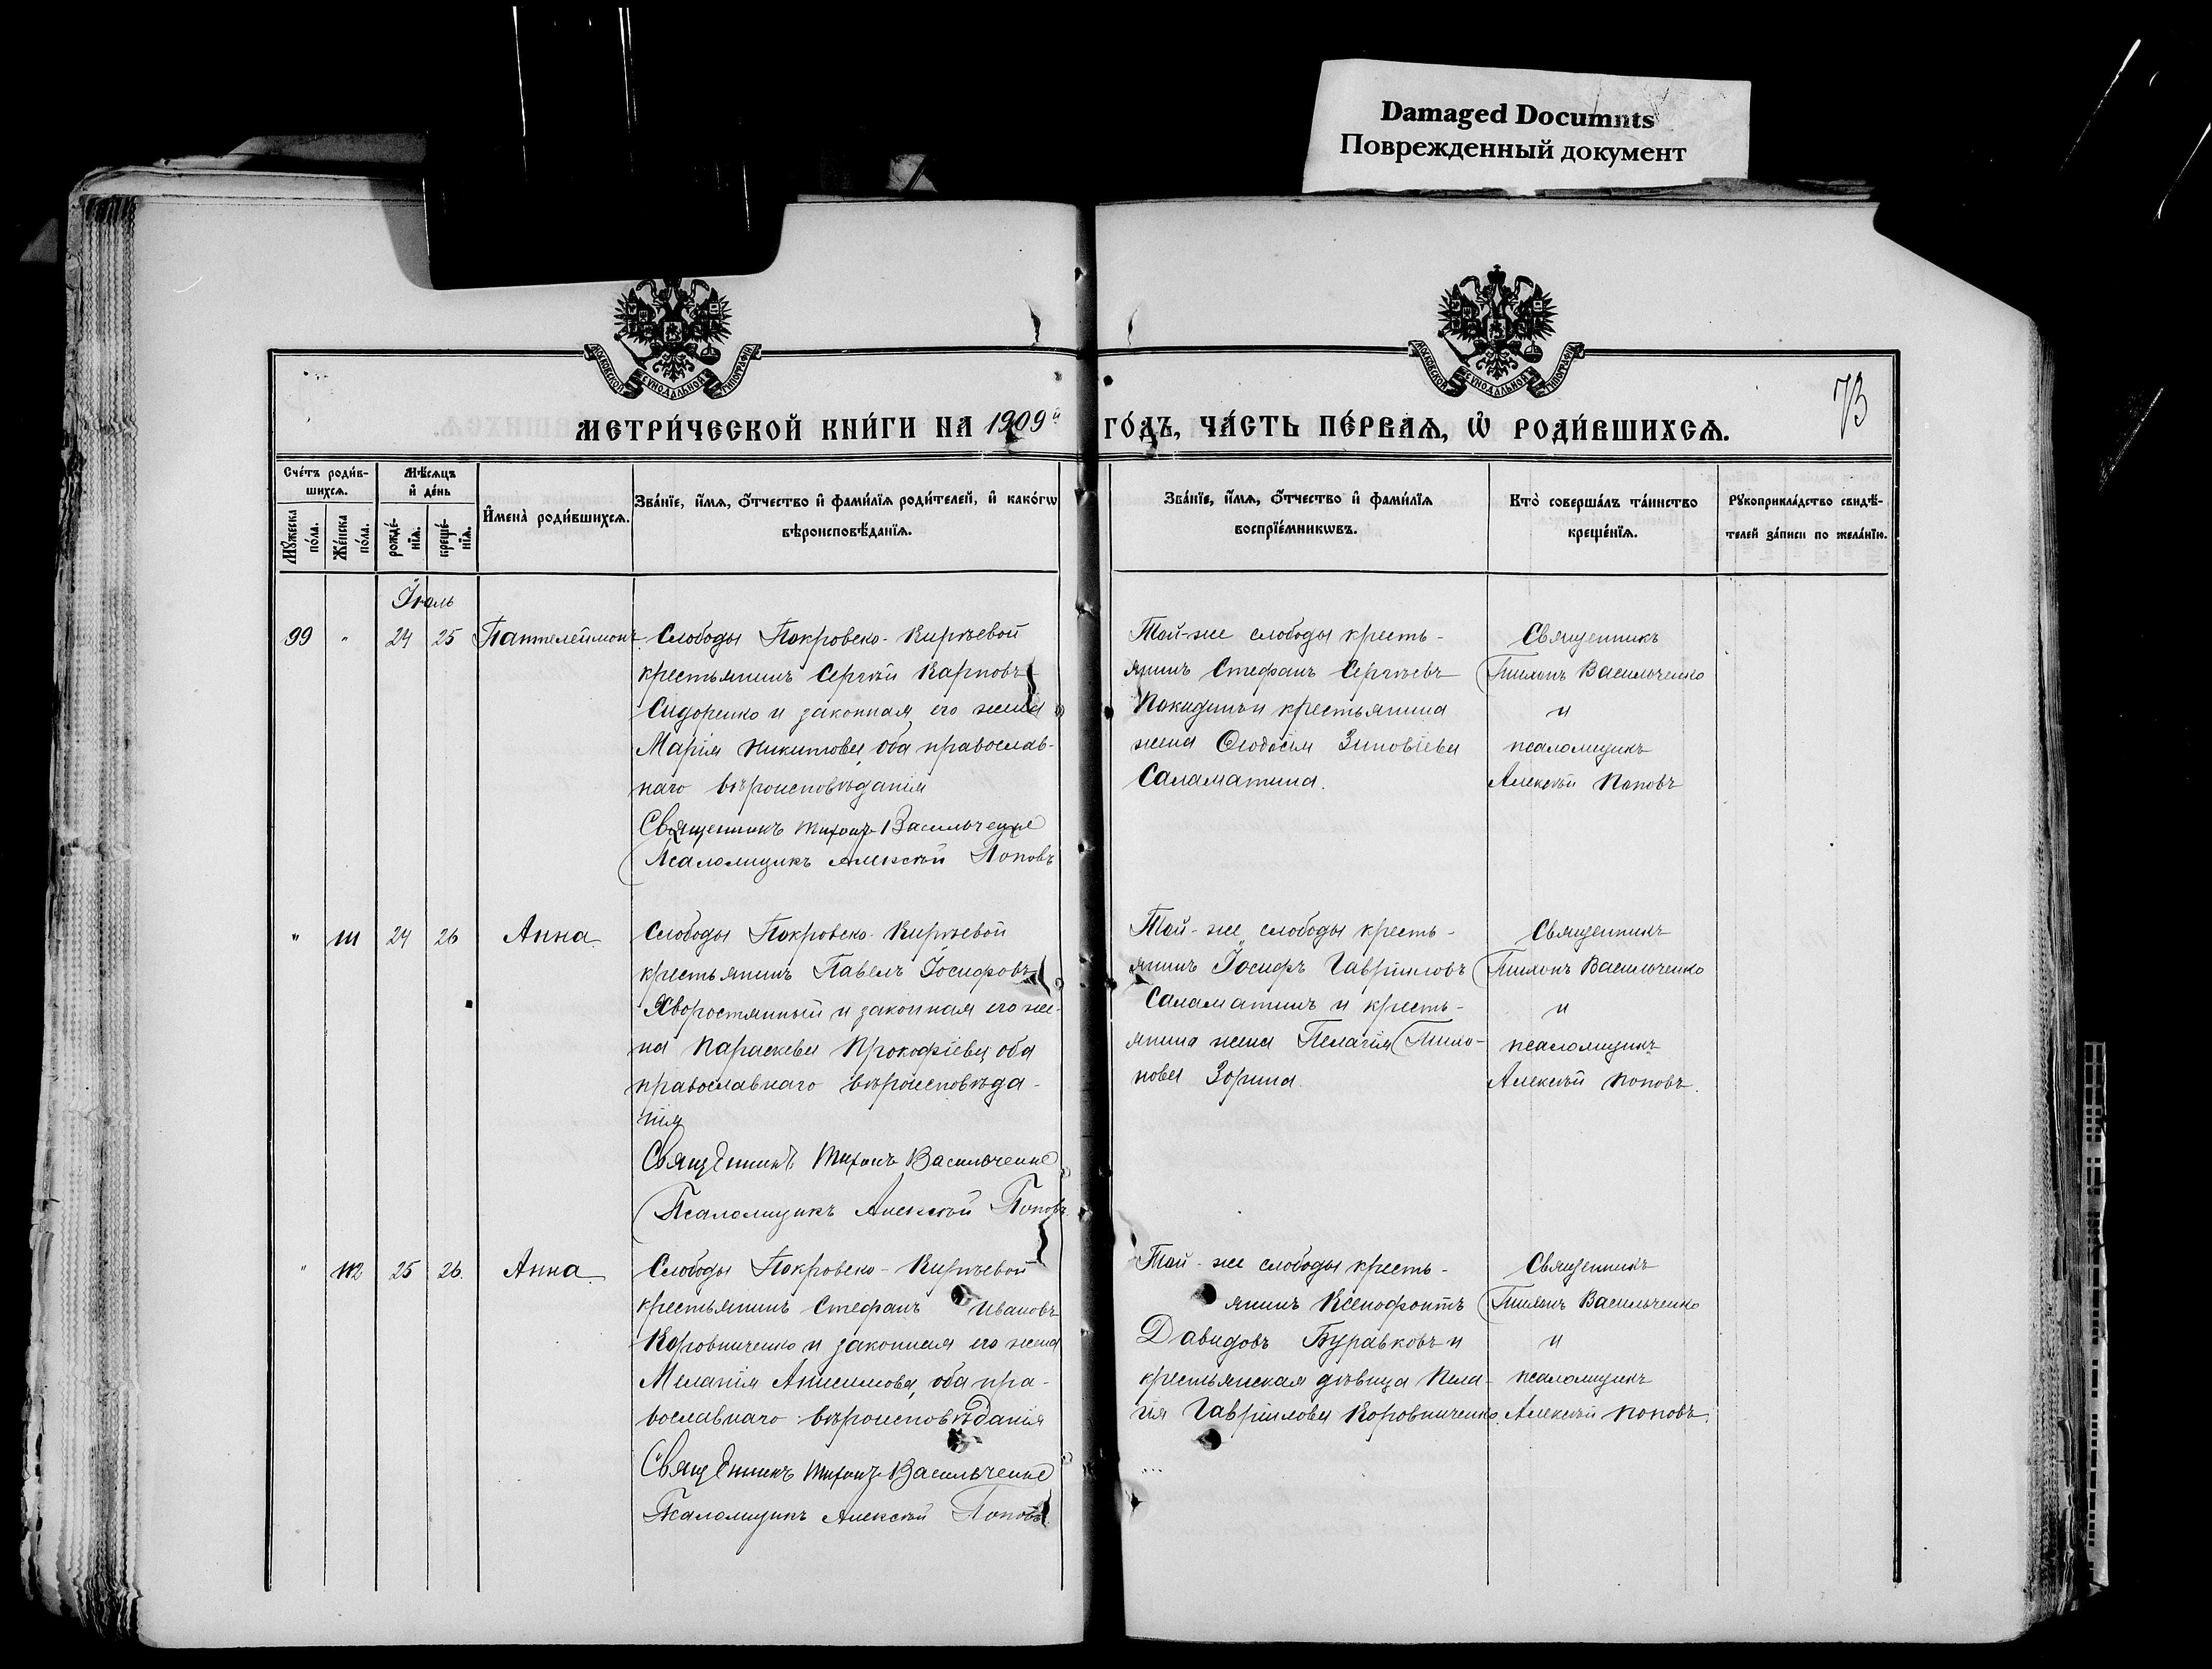 Damaged Documnts
Поврежденный документ
МОСКОВСКОЙ СѴНОДАЛЬНОЙ ТИПОГРАФІИ
МОСКОВСКОЙ СѴНОДАЛЬНОЙ ТИПОГРАФІИ
73
МЕТРИ́ЧЕСКОЙ КНИ́ГИ НА 1909й ГО́ДЪ, ЧА́СТЬ ПЕ́РВАѦ, Ѡ҆ РОДИ́ВШИХСѦ.
Сче́тъ роди́в-
шихсѧ.
Мꙋжеска по́ла.
Же́нска по́ла.
Мѣ́сѧцъ
и҆ де́нь
рожде́-
нїѧ.
креще́-
нїѧ.
И҆мена̀ роди́вшихсѧ.
Зва́нїе, и҆́мѧ, ѻ҆́тчество и҆ фами́лїѧ роди́телей, и҆ како́гѡ
вѣроисповѣ́данїѧ.
Зва́нїе, и҆́мѧ, ѻ҆́тчество и҆ фами́лїѧ
воспрїе́мникѡвъ.
Кто̀ соверша́лъ та́инство
креще́нїѧ.
Рꙋкоприкла́дство свидѣ́-
телей за́писи по жела́нїю.
Іюль
99 " 24 25 Пантелеймонъ
Слободы Покровско-Кирѣевой
крестьянинъ Сергѣй Карповъ
Сидоренко и законная его жена
Марія Никитова, оба православ-
наго вѣроисповѣданія
Священникъ Тихонъ Васильченко
Псаломщикъ Алексѣй Поповъ
Той-же слободы кресть-
янинъ Стефанъ Сергѣевъ
Покидинъ и крестьянина
жена Ѳеодосія Зиновіева
Саламатина.
Священникъ
Тихонъ Васильченко
и
псаломщикъ
Алексѣй Поповъ
" 111 24 26 Анна
Слободы Покровско-Кирѣевой
крестьянинъ Павелъ Іосифовъ
Хворостянный и законная его же-
на Параскева Прокофіева, оба
православнаго вѣроисповѣда-
нія
Священникъ Тихонъ Васильченко
Псаломщикъ Алексѣй Поповъ.
Той-же слободы кресть-
янинъ Іосифъ Гавріиловъ
Саламатинъ и кресть-
янина жена Пелагія Тихо-
нова Зорина.
Священникъ
Тихонъ Васильченко
и
псаломщикъ
Алексѣй Поповъ.
" 112 25 26. Анна
Слободы Покровско-Кирѣевой
крестьянинъ Стефанъ Ивановъ
Коровниченко и законная его жена
Меланія Анисимова, оба пра-
вославнаго вѣроисповѣданія
Священникъ Тихонъ Васильченко
Псаломщикъ Алексѣй Поповъ
Той-же слободы кресть-
янинъ Ксенофонтъ
Давидовъ Буравковъ и
крестьянская дѣвица Пела-
гія Гавріилова Коровниченко.
Священникъ
Тихонъ Васильченко
и
псаломщикъ
Алексѣй Поповъ.